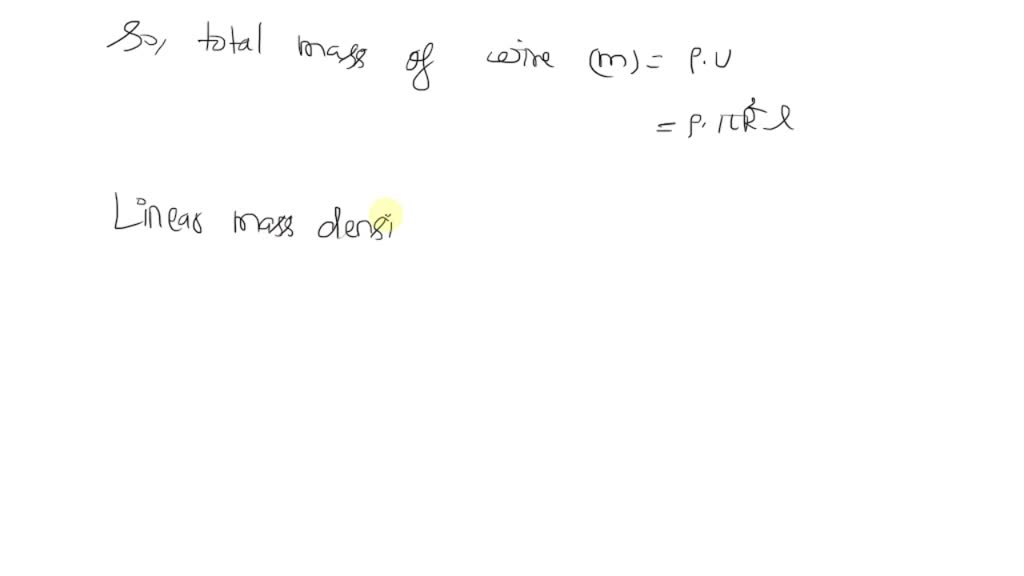 So, total mass of wire (m) = ρ.V
= ρ.πR² l
Linear mass densi